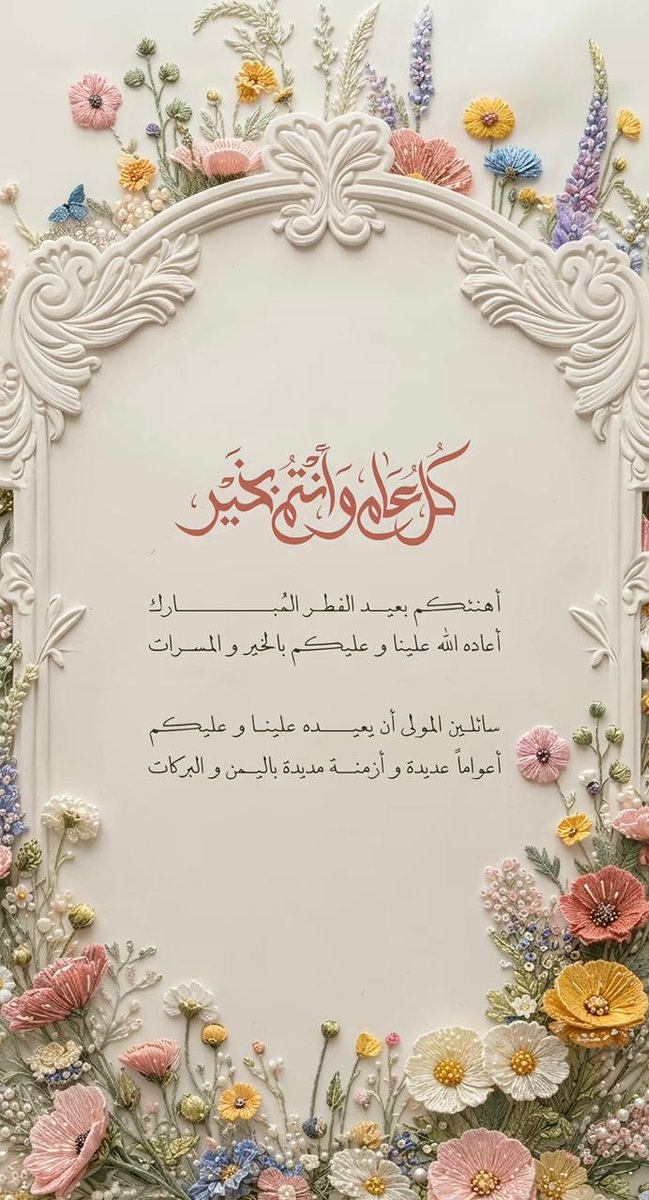 كُل عَام وَأَنْتُم بَخَيْر
أهنئكم بعيد الفطر المُبارك
أعاده الله علينا و عليكم بالخير و المسرات
سائلين المولى أن يعيده علينا و عليكم
أعواماً عديدة و أزمنة مديدة باليمن و البركات